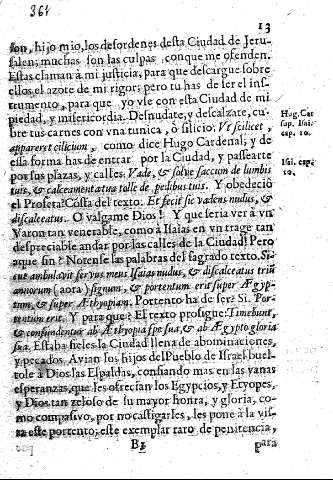 361
13
son, hijo mio, los desordenes desta Ciudad de Jeru-
salen; muchas son las culpas conque me ofenden.
Estas claman à mi justicia, para que descargue sobre
ellos el azote de mi rigor; pero tu has de ser el ins-
trumento, para que yo vse con esta Ciudad de mi
piedad, y misericordia. Desnudate, y descalzate, cu-
bre tus carnes con vna tunica, ò silicio; Vt scilicet,
appareret cilicium, como dice Hugo Cardenal; y de
essa forma has de entrar por la Ciudad, y passearte
por sus plazas, y calles. Vade, & solve saccum de lumbis
tuis, & calceamenta tua tolle de pedibus tuis. Y obedeciò
el Profeta? Cossa del texto. Et fecit sic vadens nudus, &
discalceatus. O valgame Dios! Y que seria ver à vn
Varon tan venerable, como à Isaias en vn trage tan
despreciable andar por las calles de la Ciudad! Pero
aque fin? Notense las palabras del sagrado texto. Si-
cut ambulavit servus meus Isaias nudus, & discalceatus triū
annorum (aora) signum, & portentum erit super Ægyp-
tum, & super Æthyopiam. Portento ha de ser? Si. Por-
tentum erit. Y para què? El texto prosigue: Timebunt,
& confundentur ab Æthyopia spe sua, & ab Ægypto gloria
sua. Estaba fieles la Ciudad llena de abominaciones,
y pecados. Avian los hijos del Pueblo de Israel buel-
tole à Dios las Espaldas, confiando mas en las vanas
esperanzas, que les ofrecian los Egypcios, y Etyopes,
y Dios tan zeloso de su mayor honra, y gloria, co-
mo compasivo, por no castigarles, les pone à la vis-
ta este portento; este exemplar raro de penitencia,
B1
para
Hug. Car
sup. Isai.
cap. 10.
Isi. cap.
10.